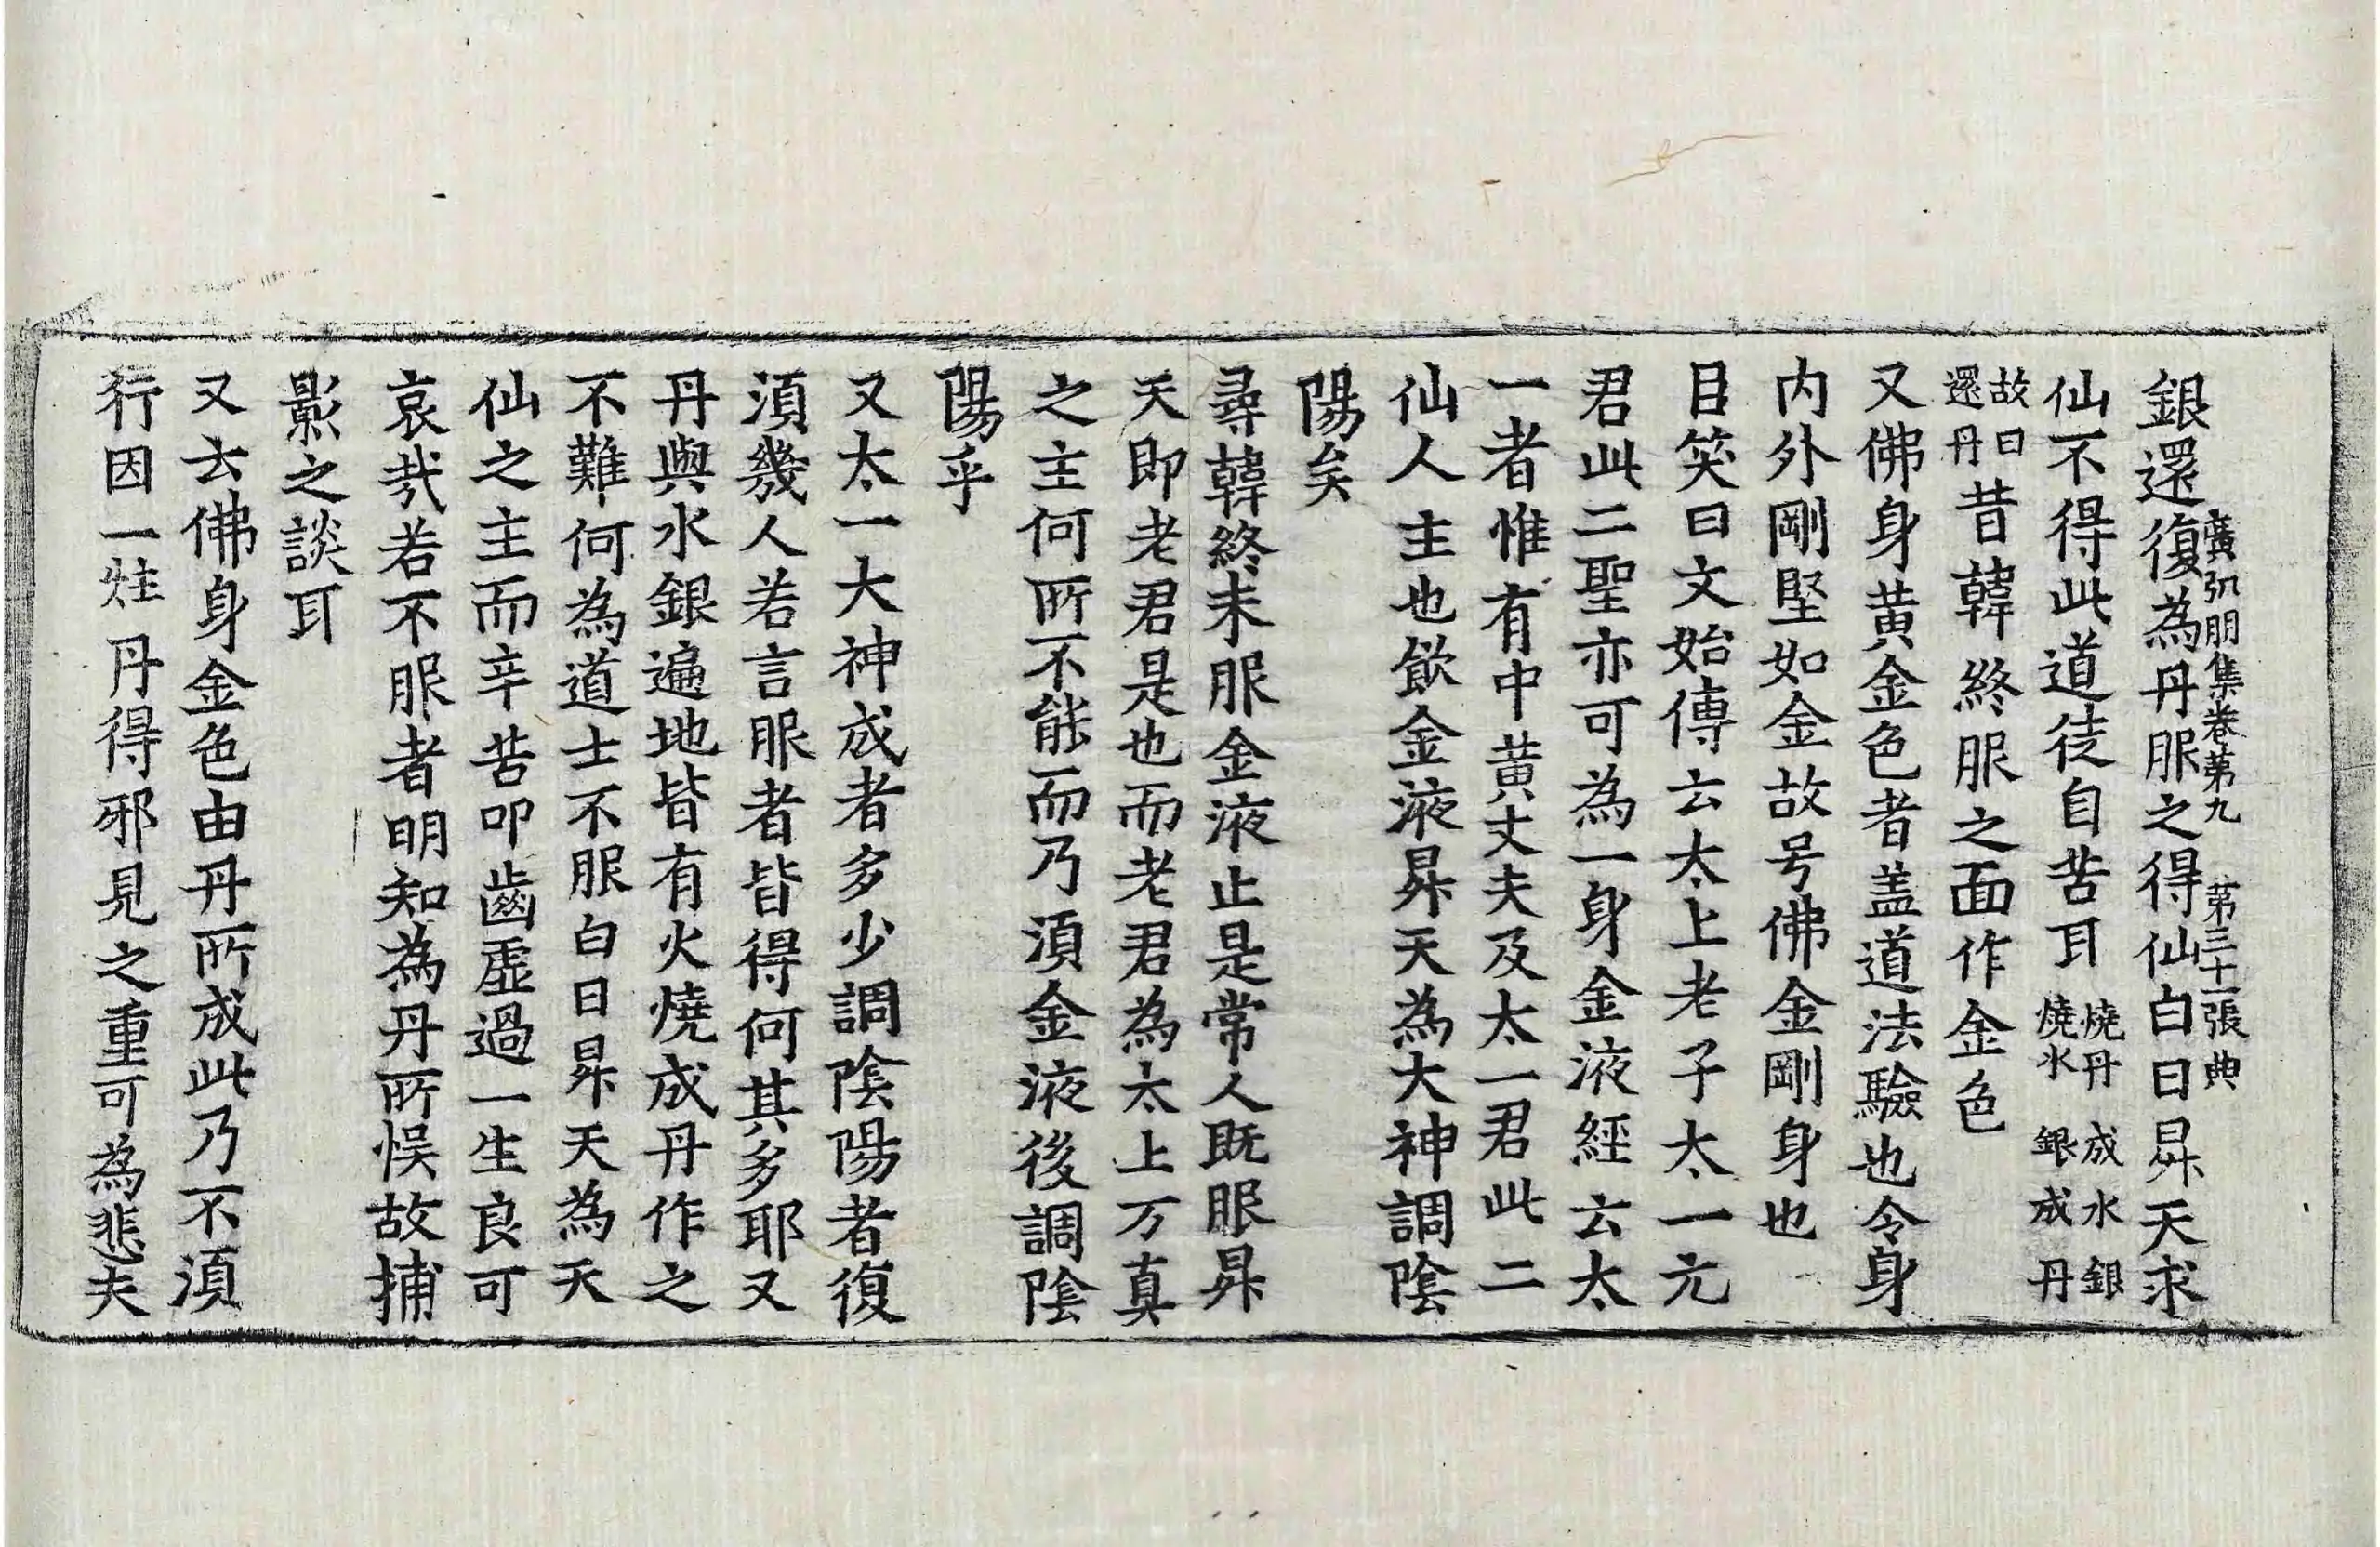 廣弘明集卷第九　第三十一張　典
銀還復為丹服之得仙白日昇天求
仙不得此道徒自苦耳燒丹成水銀燒水銀成丹
故曰還丹昔韓終服之面作金色
又佛身黄金色者盖道法驗也令身
内外剛堅如金故号佛金剛身也
臣笑曰文始傳云太上老子太一元
君此二聖亦可為一身金液經云太
一者惟有中黄丈夫及太一君此二
仙人主也飲金液昇天為大神調陰
陽矣
尋韓終未服金液止是常人既服昇
天即老君是也而老君為太上万真
之主何所不能而乃須金液後調陰
陽乎
又太一大神成者多少調陰陽者復
須幾人若言服者皆得何其多耶又
丹與水銀遍地皆有火燒成丹作之
不難何為道士不服白日昇天為天
仙之主而辛苦叩齒虚過一生良可
哀哉若不服者明知為丹所悮故捕
影之談耳
又去佛身金色由丹所成此乃不須
行因一炷丹得邪見之重可為悲夫